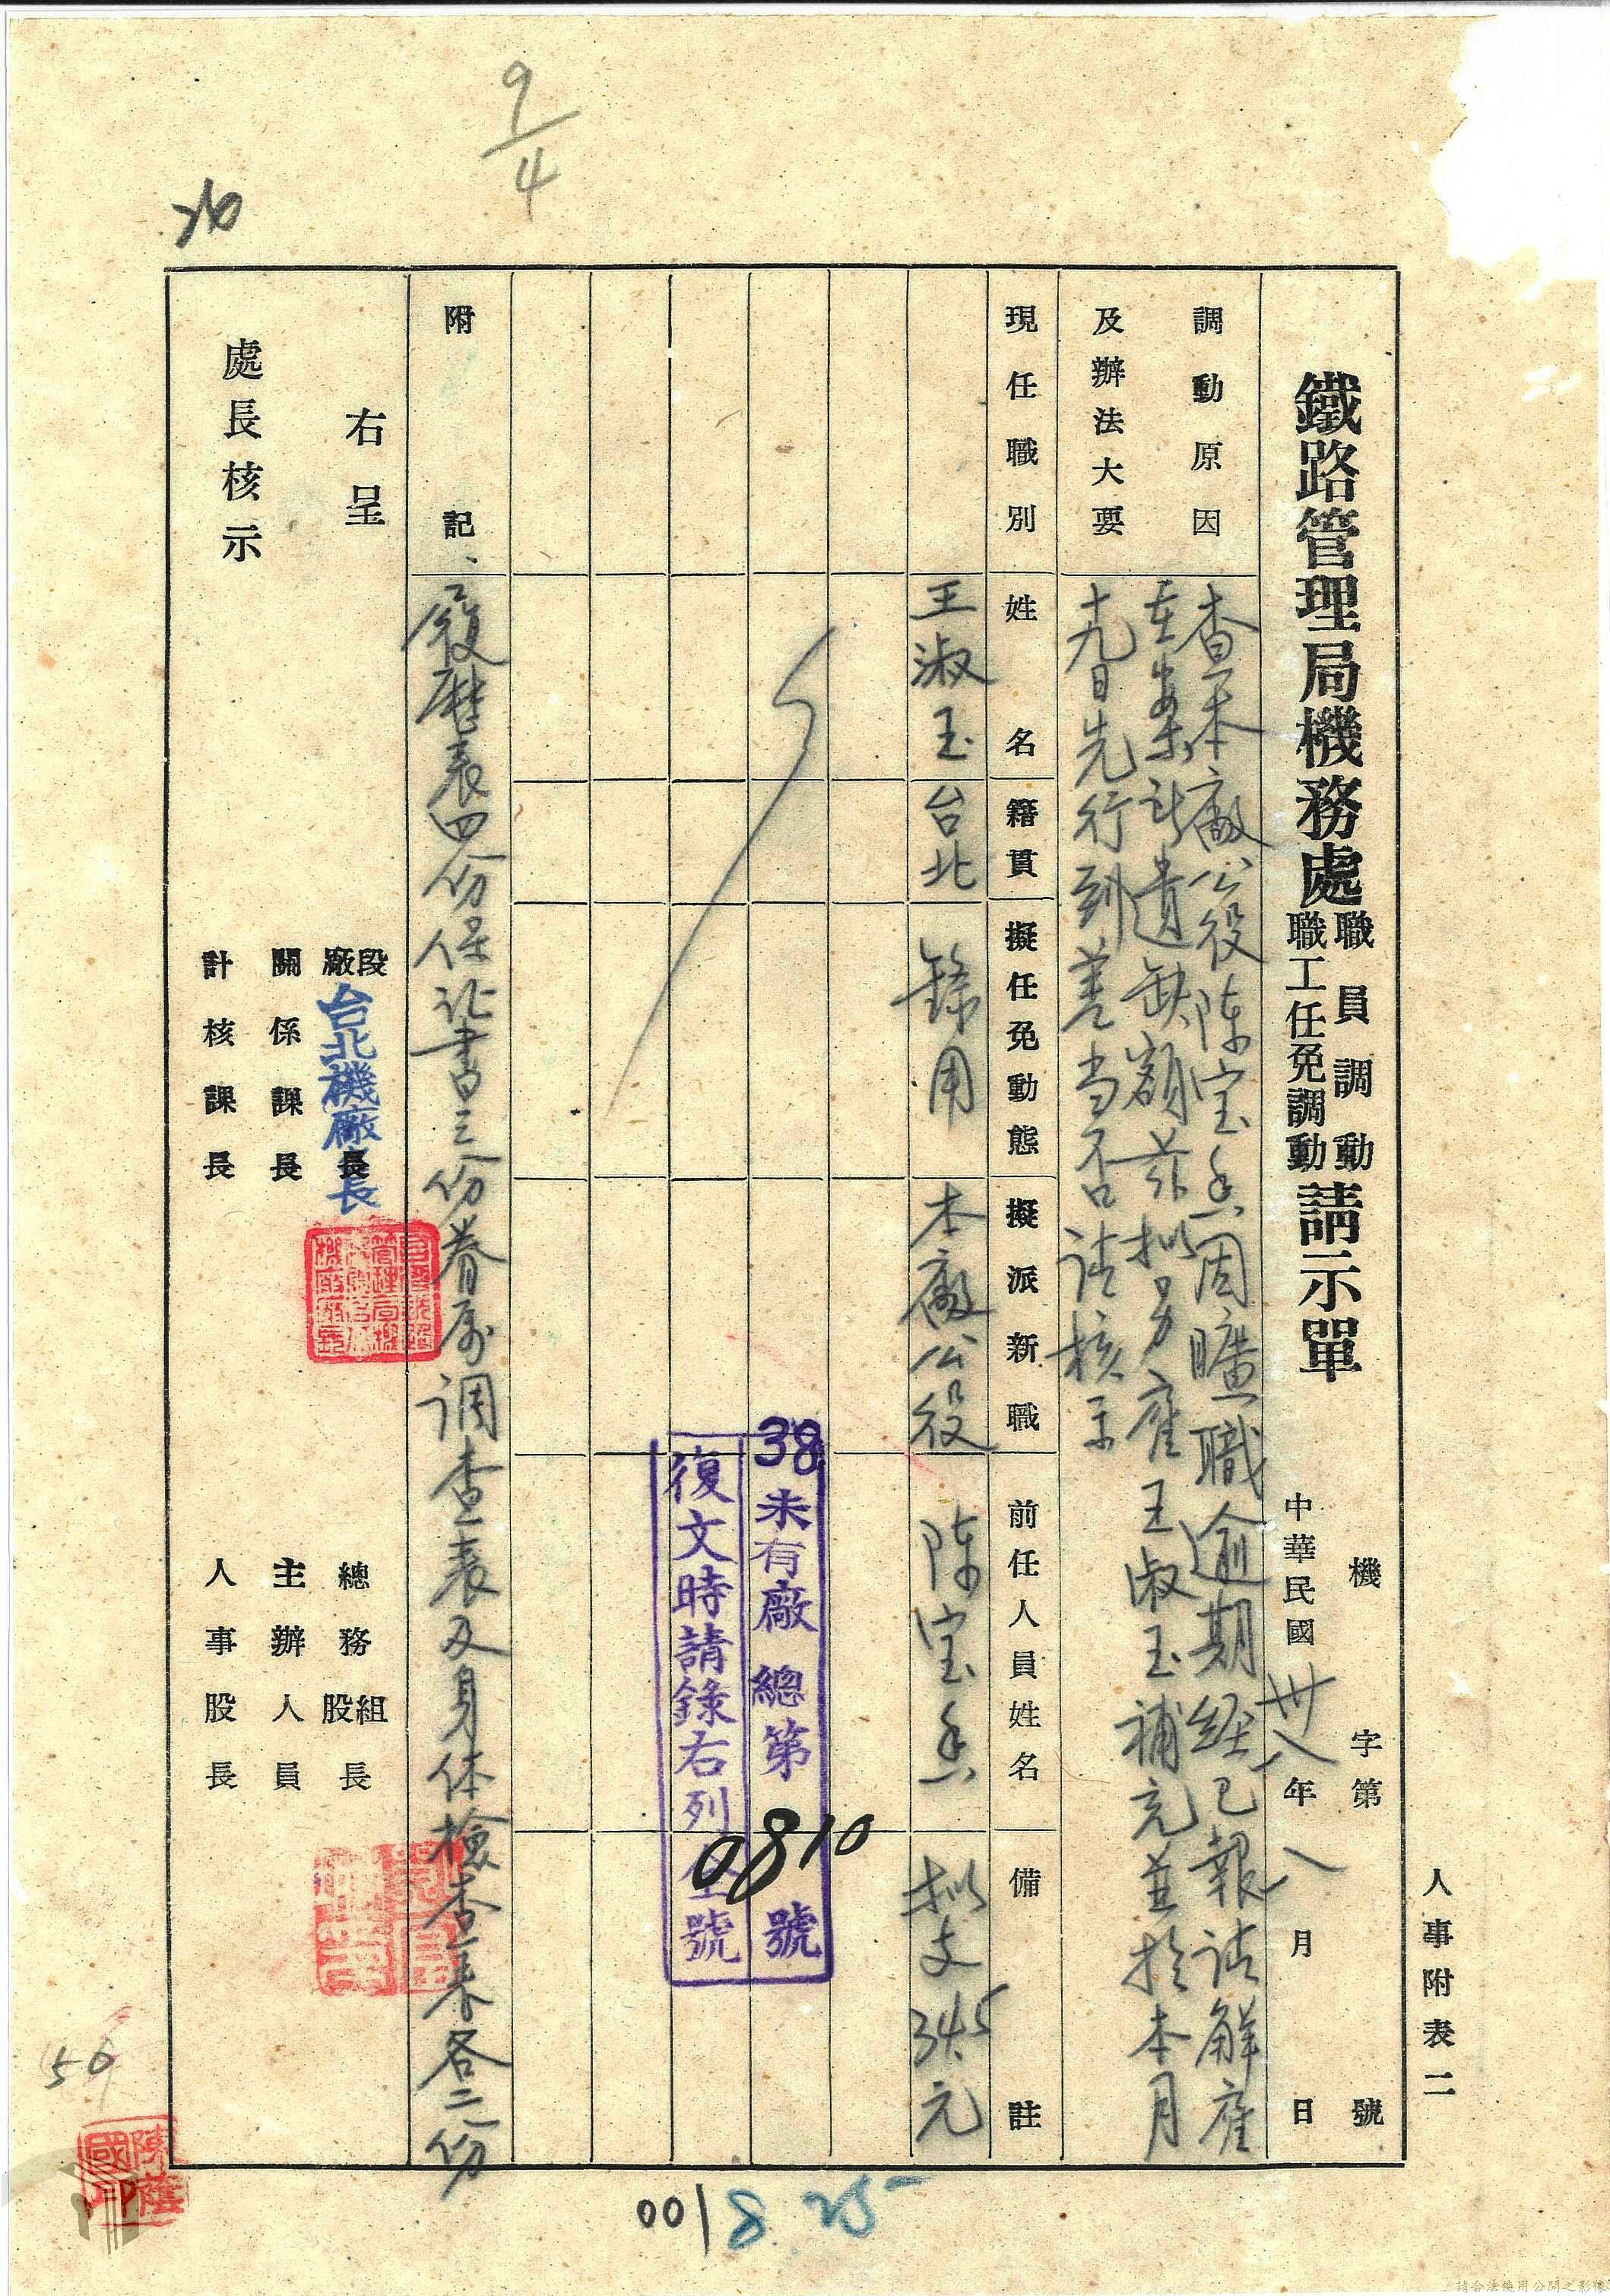 人事附表二
鐵路管理局機務處職員調動職工任免調動請示單
機 字第 號
中華民國卅八年八月 日
調動原因及辦法大要
查本廠公役陳宝香因曠職逾期経已報請解雇
在案所遺缺額茲拟另雇王淑玉補充並於本月
十九日先行到差当否请核示
現任職別
姓名
籍貫
擬任免動態
擬派新職
前任人員姓名
備註
王淑玉
台北
錄用
本廠公役
陳宝香
拟支34.5元
38未有廠總第0810號
復文時請錄右列全號
附記
履歷表四份保证書三份眷属调查表及身体檢查表各二份
右呈
處長核示
段廠長
台北機廠長
關係課長
計核課長
總務組股長
主辦人員
人事股長
9/4
26
56
陳蔭國印
001
8.25
請合法使用公開之影像